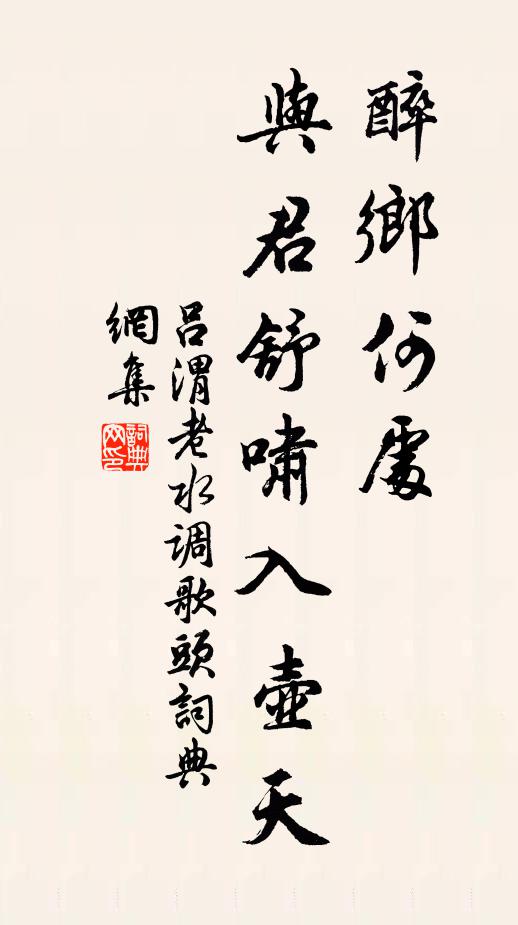 醉鄉何處
與君舒嘯入壺天
吕渭老水调歌頭詞典
網集
詞典網印